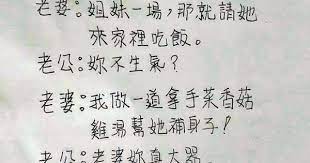 老婆：姐妹一場，那就請她
來家裡吃飯。
老公：妳不生氣？
老婆：我做一道拿手菜香菇
雞湯幫她補身子！
老公：老婆妳真大器